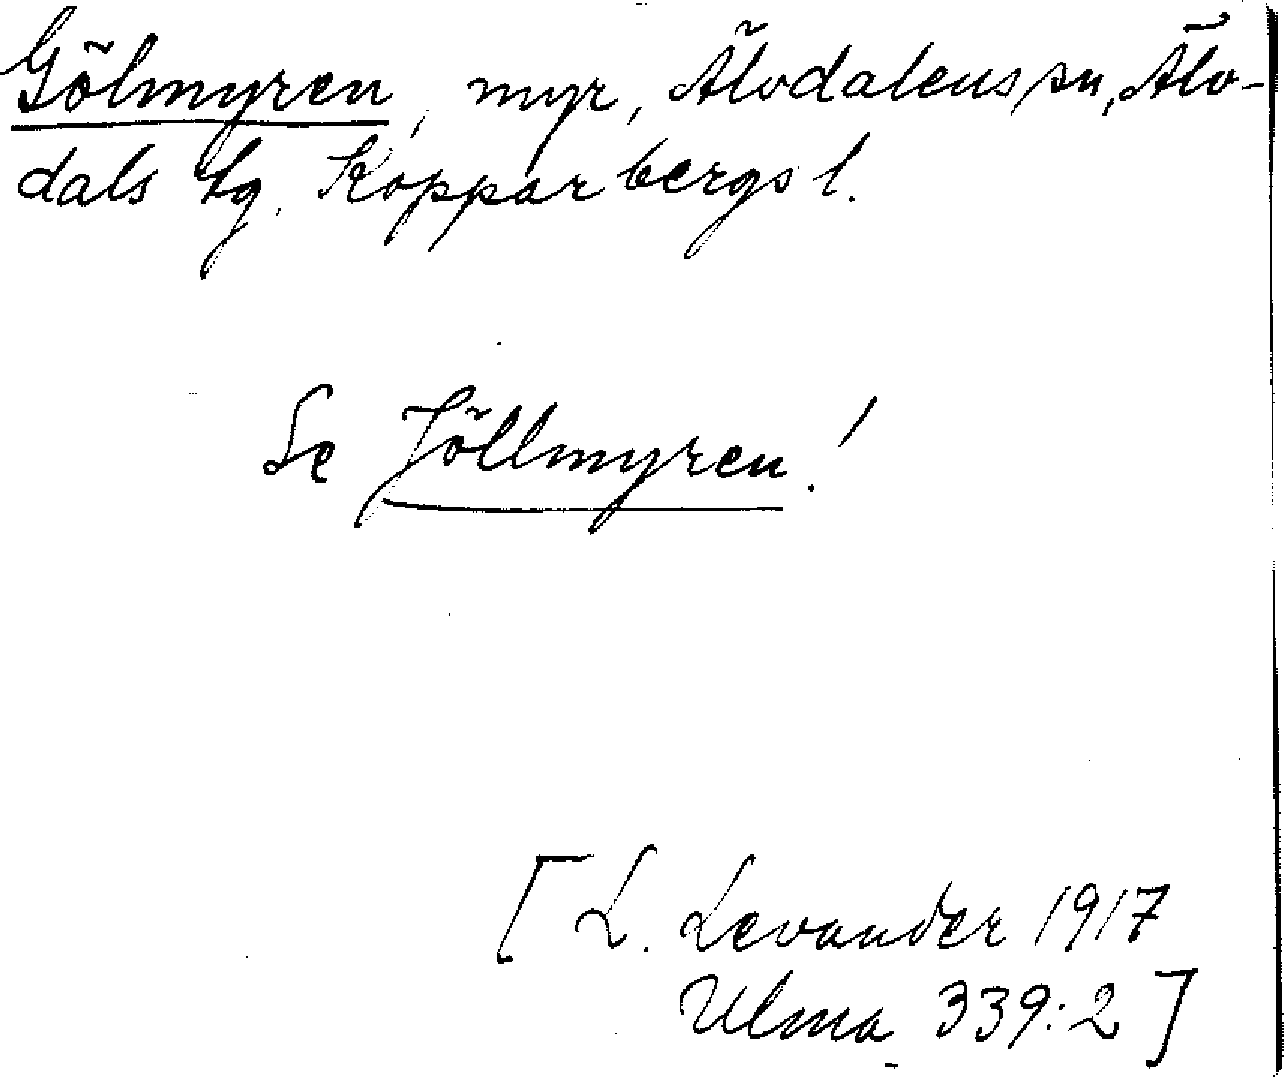 Gölmyren, myr, Älvdalens sn, Älv-
dals tg, Kopparbergs l.
Se Jöllmyren!
[L. Levander 1917
Ulma 339:2]